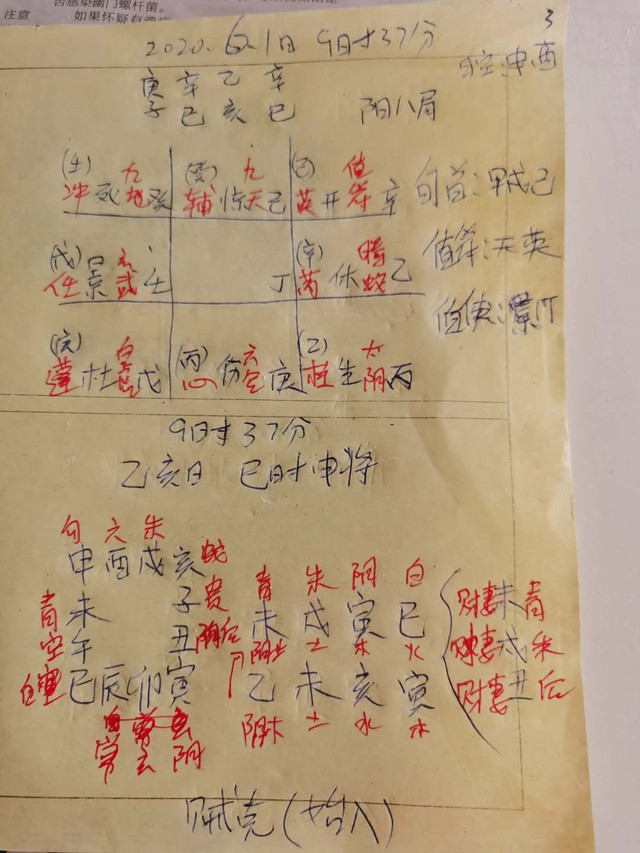 注意
如果怀疑有
3
2020.6.1日 9时37分
旬空:申酉
庚 辛 乙 辛
子 巳 亥 巳 阳八局
九 九 值
冲 死 地 癸 辅 惊 天 己 英 开 符 辛
旬首:甲戌己
值符:天英
(戊) 玄 (辛) 腾
任 景 武 壬 丁 芮 休 蛇 乙
值使:景门
白 (丙) 六 (乙) 太
蓬 杜 虎 戊 心 伤 合 庚 柱 生 阴 丙
9时37分
乙亥日 巳时申将
勾 六 朱
申 酉 戌 亥 蛇
青 未 子 贵
空 午 丑 后
白 巳 辰 卯 寅
常 玄 阴
青 朱 阴 白
未 戌 寅 巳
阴土 土 木 火
乙 未 亥 寅
阴木 土 水 木
财 妻 未 青
财 妻 戌 朱
财 妻 丑 后
贼克(始入)